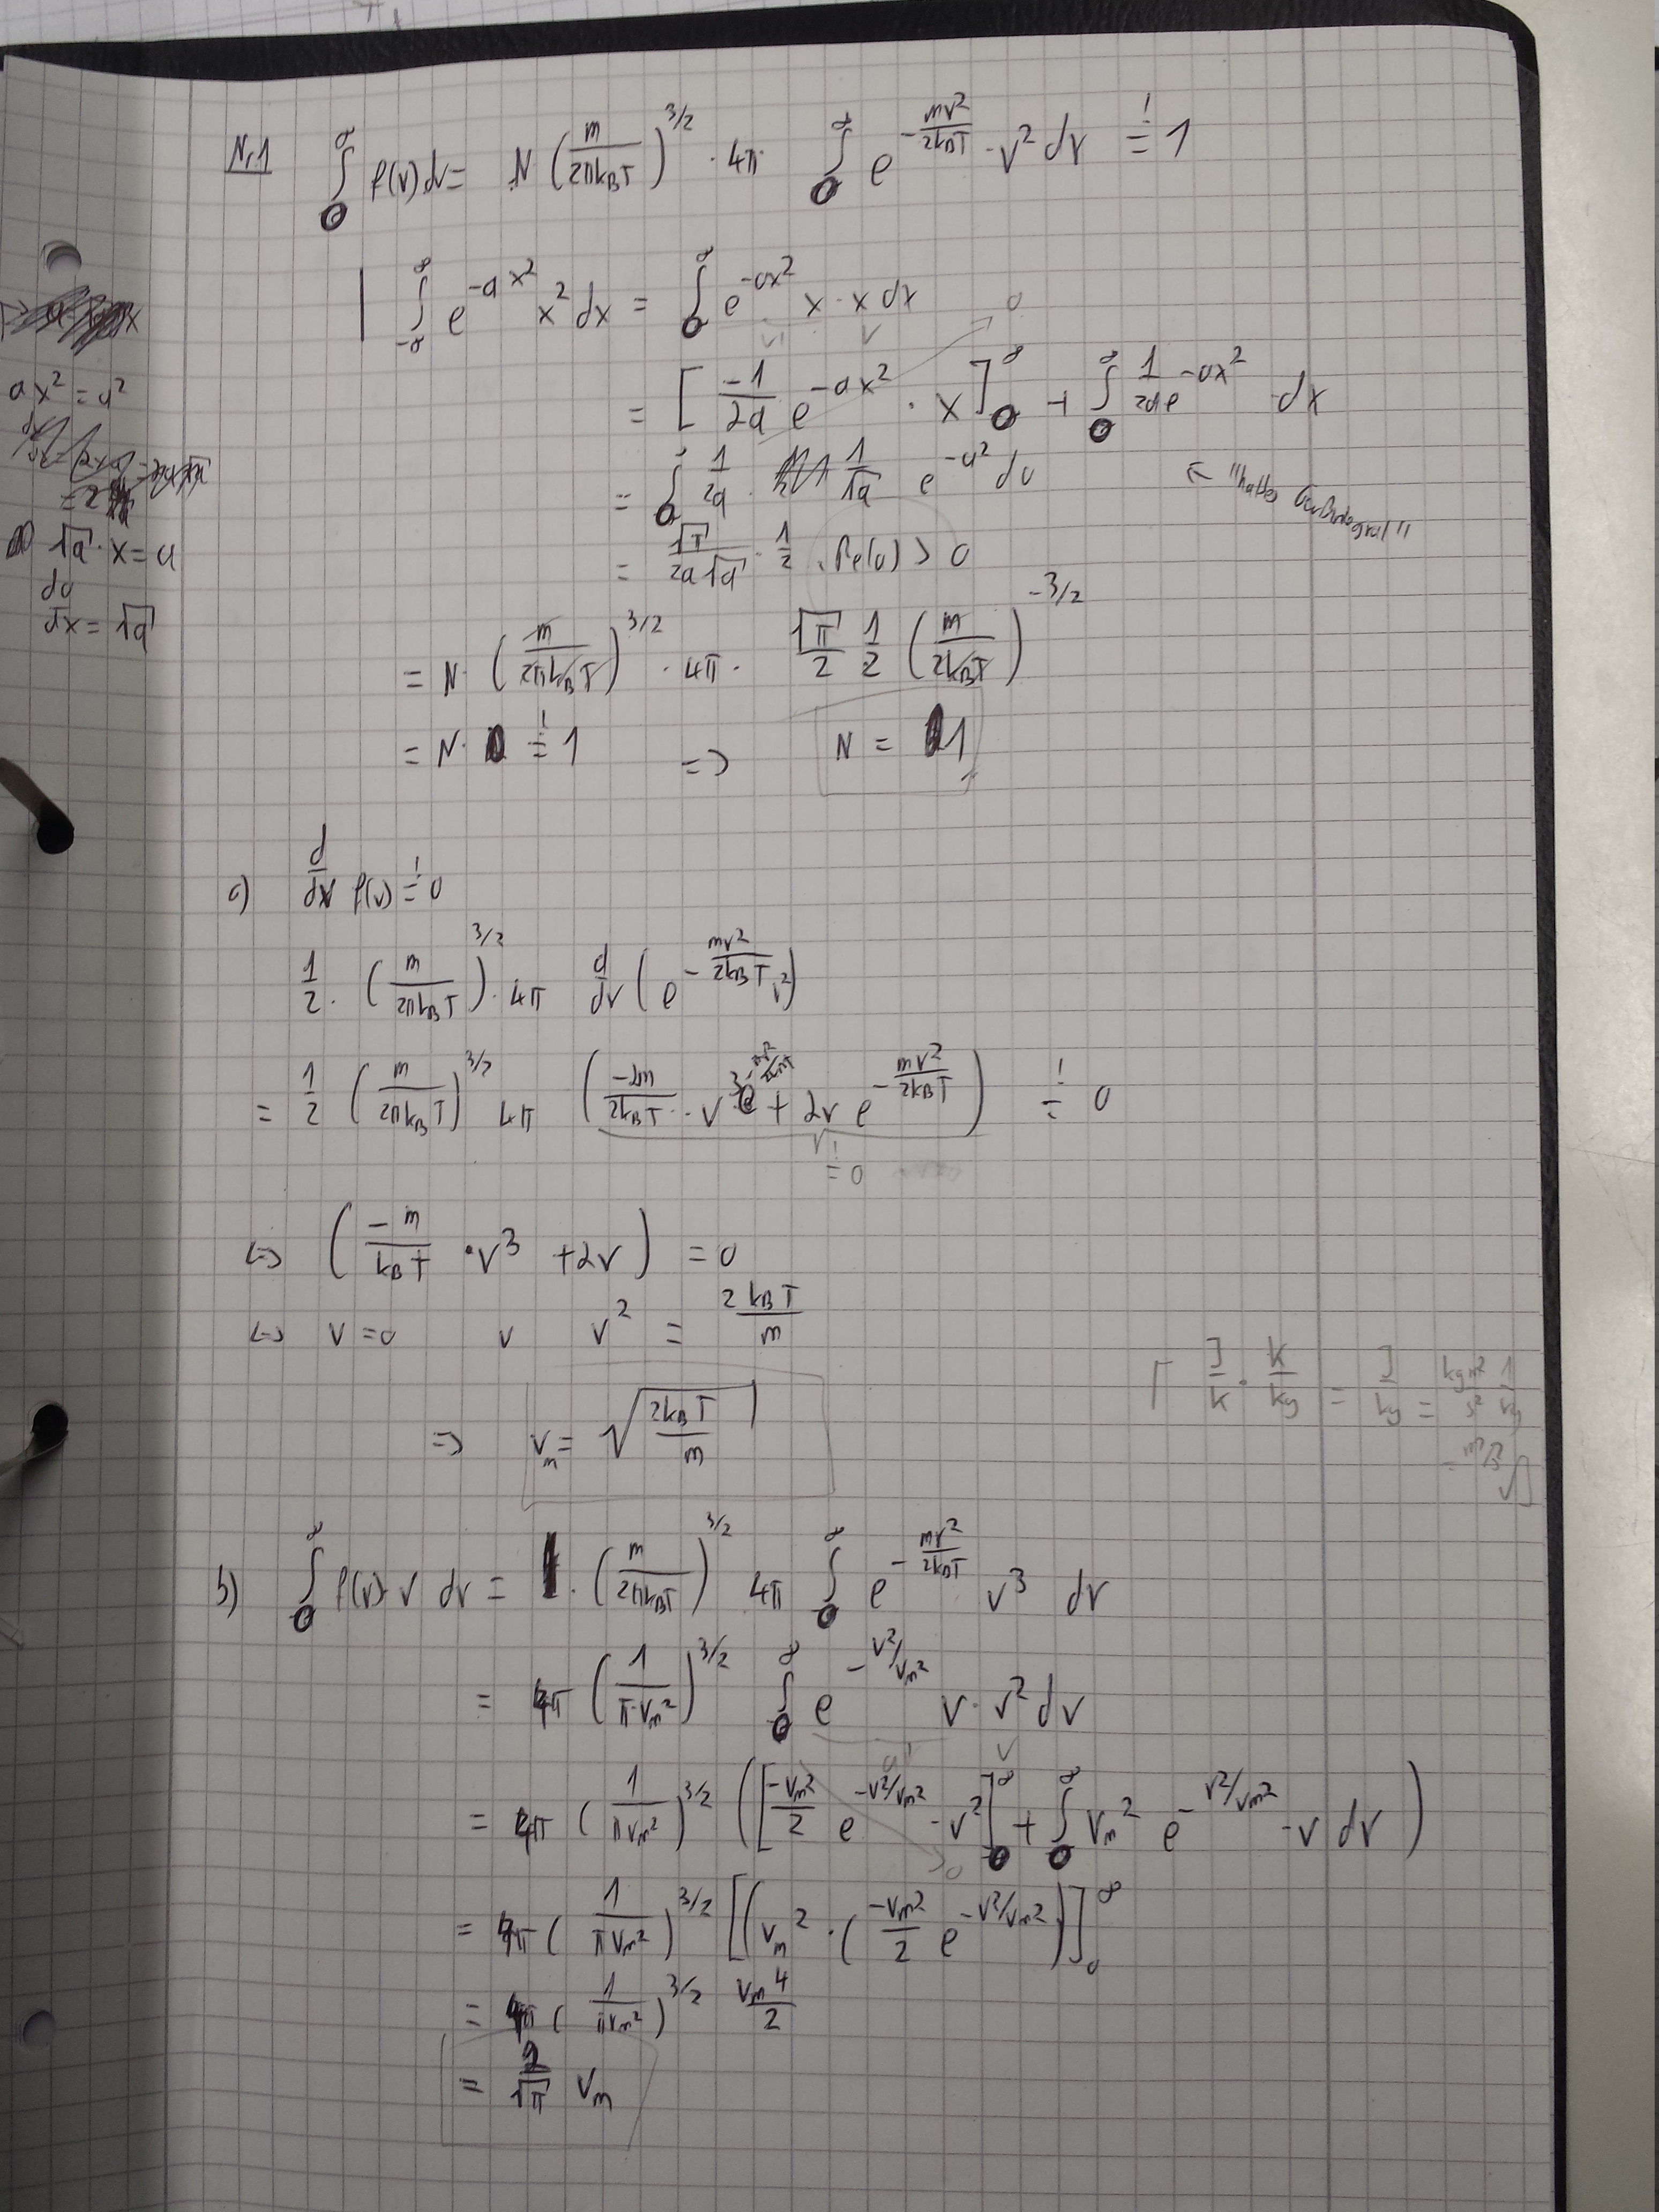 Nr.1 ∫_0^∞ f(v) dv = N (m/(2πk_BT))^{3/2} · 4π · ∫_0^∞ e^{-mv²/(2k_BT)} · v² dv =! 1
| ∫_{-∞}^∞ e^{-ax²} x² dx = ∫_0^∞ e^{-ax²} x · x dx
u' v 0
= [ -1/(2a) e^{-ax²} · x ]_0^∞ + ∫_0^∞ 1/(2a) e^{-ax²} dx
ax² = u²
= ∫_0^∞ 1/(2a) · 1/√a e^{-u²} du ← "halbes Gaußintegral"
√a · x = u
= √π/(2a√a) · 1/2 , Re(a) > 0
du/dx = √a
= N · (m/(2πk_BT))^{3/2} · 4π · √π/2 1/2 (m/(2k_BT))^{-3/2}
= N · =! 1 => N = 1
c) d/dv f(v) =! 0
1/2 · (m/(2πk_BT))^{3/2} · 4π d/dv ( e^{-mv²/(2k_BT)} v² )
= 1/2 (m/(2πk_BT))^{3/2} 4π ( -2m/(2k_BT) · v³ e^{-mv²/(2k_BT)} + 2v e^{-mv²/(2k_BT)} ) =! 0
=! 0
<=> ( -m/(k_BT) · v³ + 2v ) = 0
<=> v = 0 ∨ v² = 2k_BT/m
⌈ J/K · K/kg = J/kg = kgm²/s² 1/kg
=> v_m = √(2k_BT/m)
= m²/s² √ ⌋
b) ∫_0^∞ f(v) · v dv = 1 · (m/(2πk_BT))^{3/2} 4π ∫_0^∞ e^{-mv²/(2k_BT)} v³ dv
= 4π (1/(π·v_m²))^{3/2} ∫_0^∞ e^{-v²/v_m²} v · v² dv
u' v
= 4π (1/(πv_m²))^{3/2} ( [ -v_m²/2 e^{-v²/v_m²} · v² ]_0^∞ + ∫_0^∞ v_m² e^{-v²/v_m²} · v dv )
0
= 4π (1/(πv_m²))^{3/2} [ ( v_m² · ( -v_m²/2 e^{-v²/v_m²} ) ]_0^∞
= 4π (1/(πv_m²))^{3/2} v_m⁴/2
= 2/√π v_m